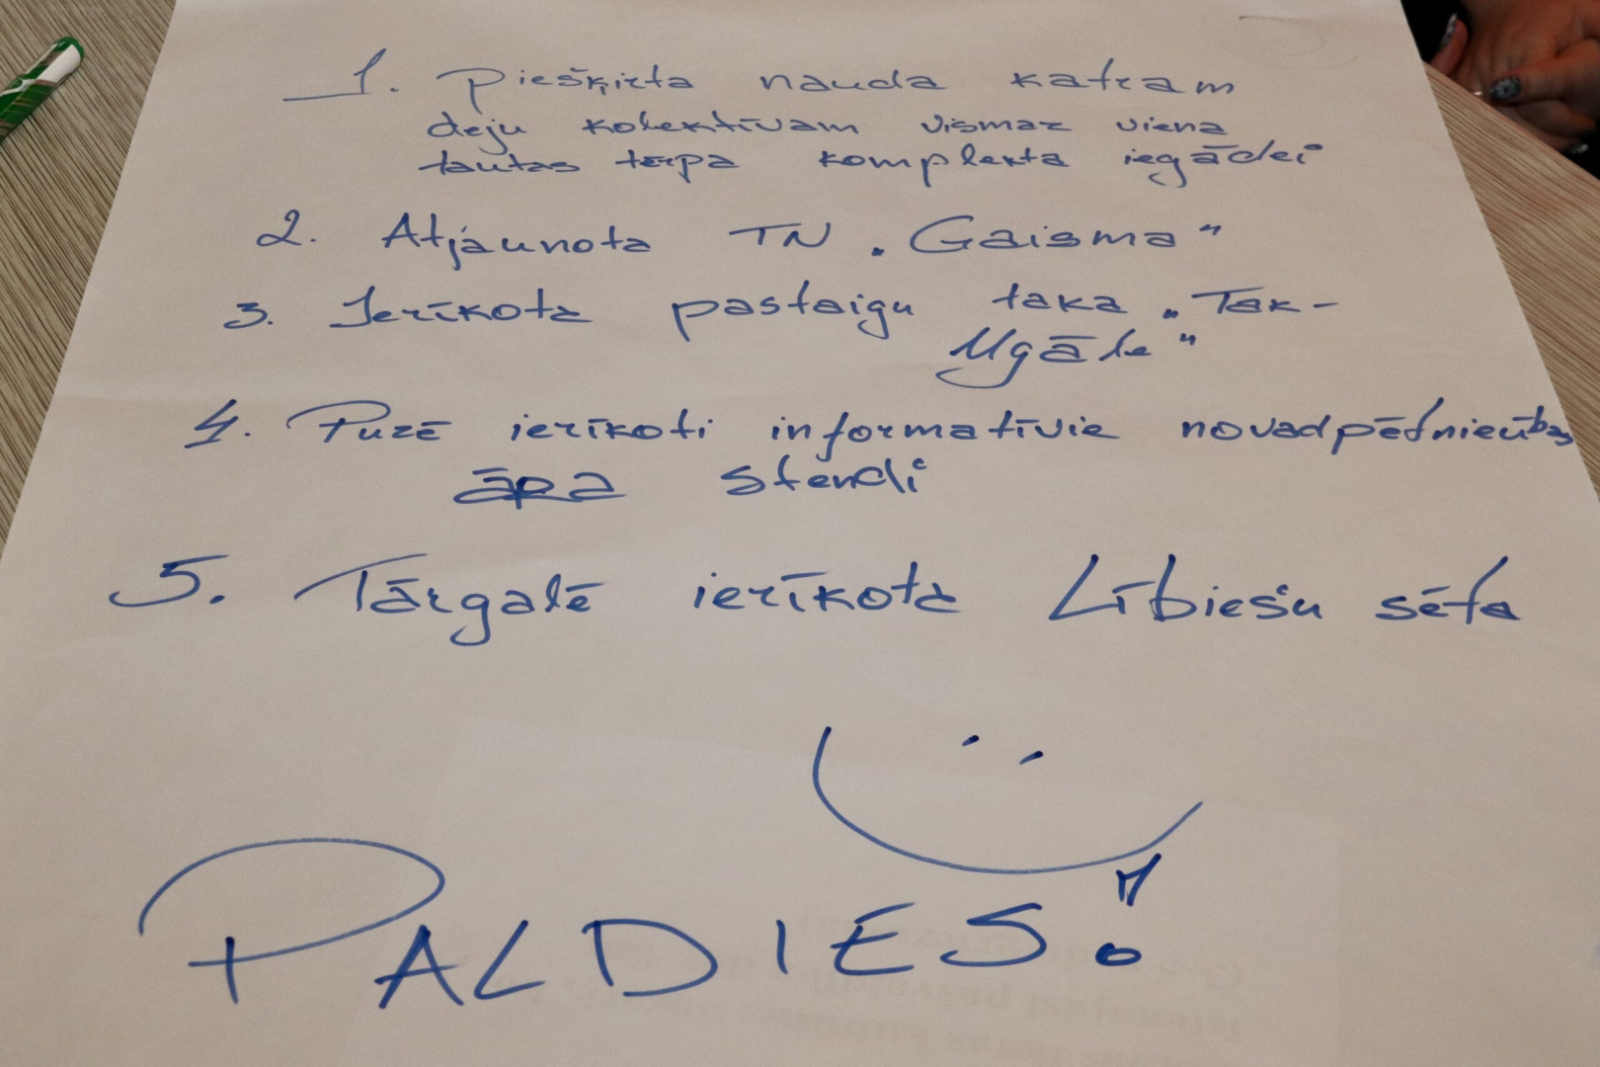 1. Piešķirta nauda katram
deju kolektīvam vismaz viena
tautas tērpa komplekta iegādei
2. Atjaunota TN „Gaisma"
3. Ierīkota pastaigu taka „Tek-
Ugāle"
4. Puzē ierīkoti informatīvie novadpētniecības
āra stendi
5. Tārgalē ierīkota Lībiešu sēta
PALDIES!